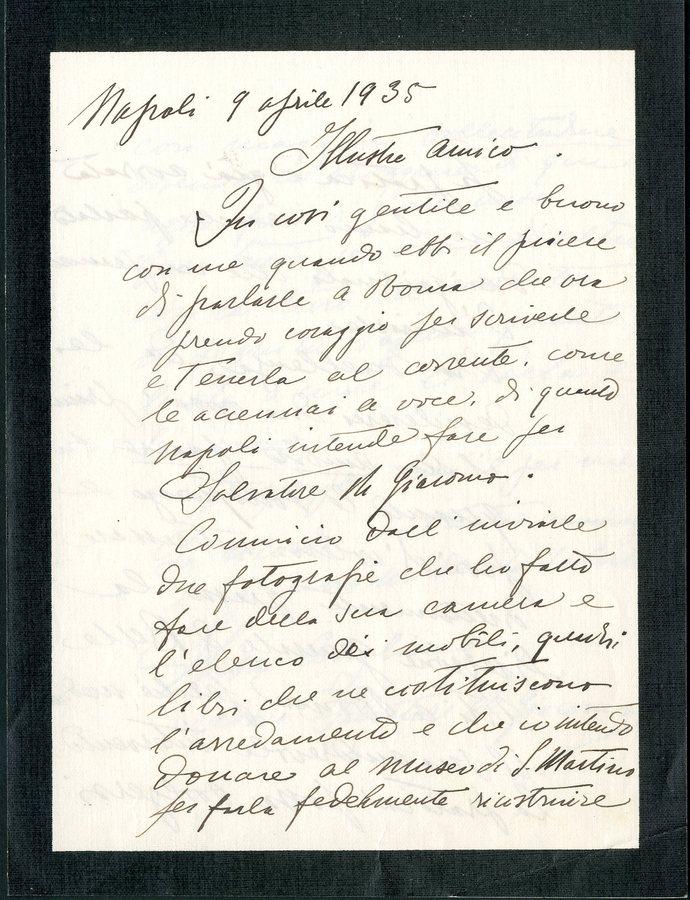 Napoli 9 aprile 1935
Illustre Amico.
Fu così gentile e buono
con me quando ebbi il piacere
di parlarle a Roma che ora
prendo coraggio per scriverle
e tenerla al corrente, come
le accennai a voce, di quanto
Napoli intende fare per
Salvatore Di Giacomo.
Comincio dall'inviarle
due fotografie che ho fatto
fare della sua camera e
l'elenco dei mobili, quadri
libri che ne costituiscono
l'arredamento e che io intendo
donare al Museo di S. Martino
per farla fedelmente ricostruire